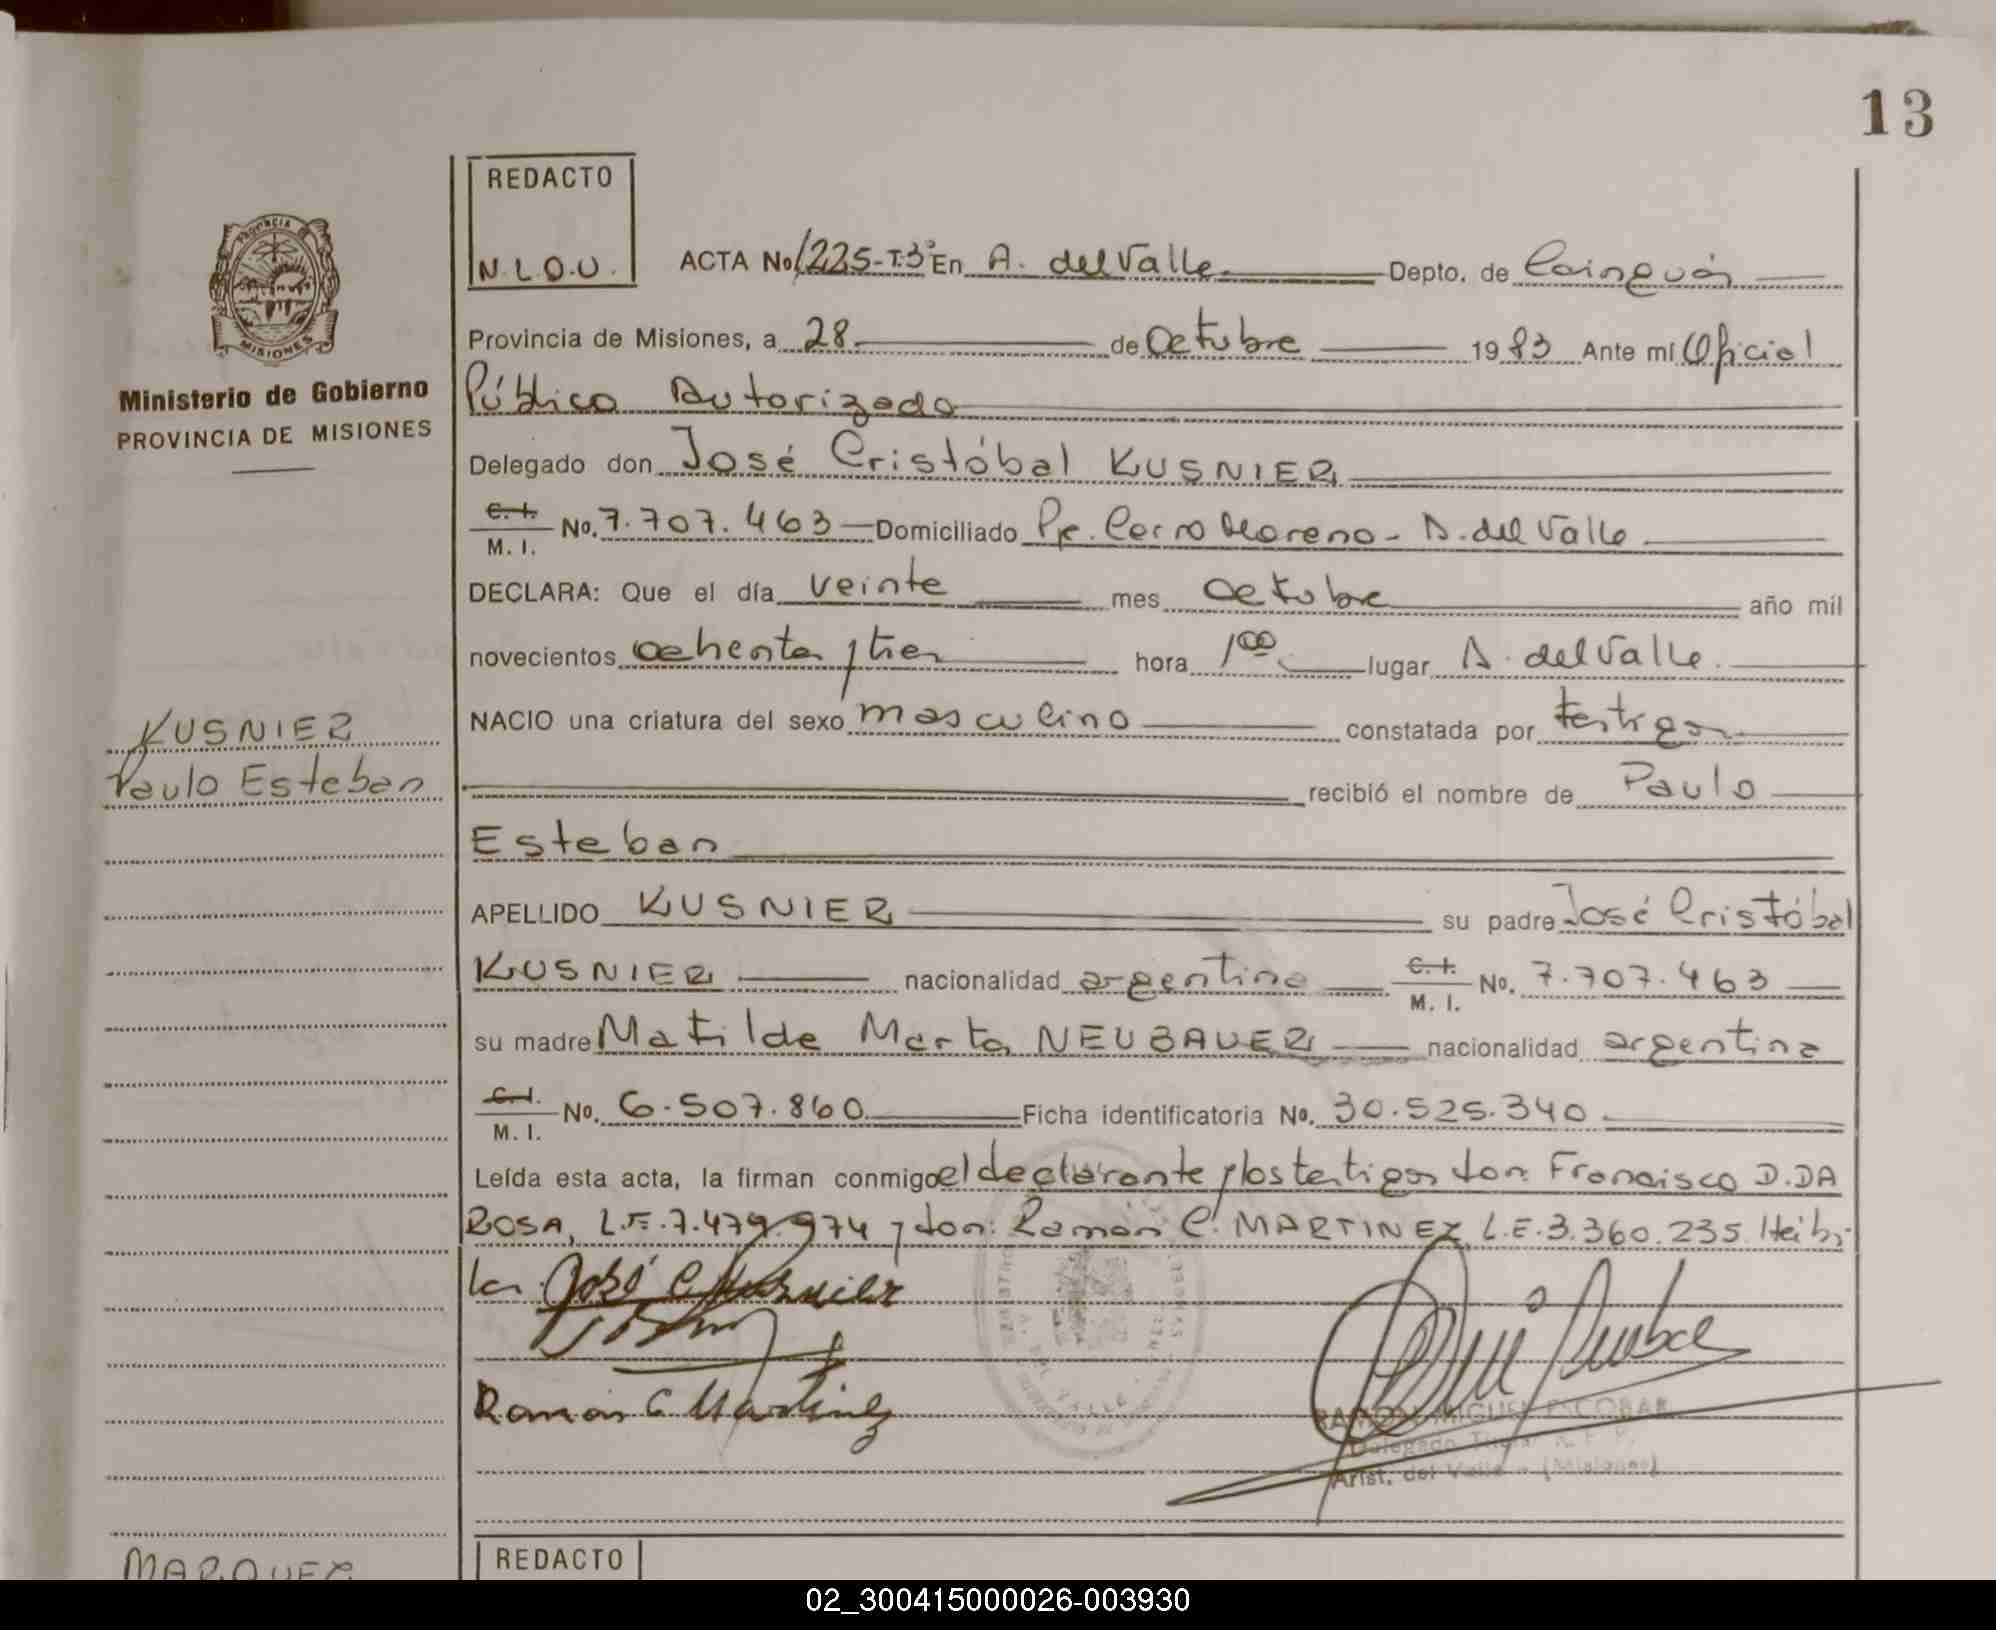 13
REDACTO
N.L.O.U.
PROVINCIA
MISIONES
Ministerio de Gobierno
PROVINCIA DE MISIONES
ACTA No 1225-T.3° En A. del Valle Depto. de Cainguás
Provincia de Misiones, a 28 de Octubre 1983 Ante mí Oficial
Público Autorizado
Delegado don José Cristóbal KUSNIER
C.I. M.I. No. 7.707.463 Domiciliado Pje. Cerro Moreno - A. del Valle
DECLARA: Que el día veinte mes octubre año mil
novecientos ochenta y tres hora 1,00 lugar A. del Valle
NACIO una criatura del sexo masculino constatada por testigos
KUSNIER
Paulo Esteban
recibió el nombre de Paulo
Esteban
APELLIDO KUSNIER su padre José Cristóbal
KUSNIER nacionalidad argentina C.I. M.I. No. 7.707.463
su madre Matilde Marta NEUBAUER nacionalidad argentina
C.I. M.I. No. 6.507.860 Ficha identificatoria No. 30.525.340
Leída esta acta, la firman conmigo el declarante y los testigos don: Francisco D. DA
ROSA, L.E. 7.479.974 y don: Ramón C. MARTINEZ L.E. 3.360.235
José C. Kusnier
Ramón C Martinez
RAMON MIGUEL ESCOBAR
Delegado Titular R. P. P.
Arist. del Valle - (Misiones)
MARQUEZ
REDACTO
02_300415000026-003930